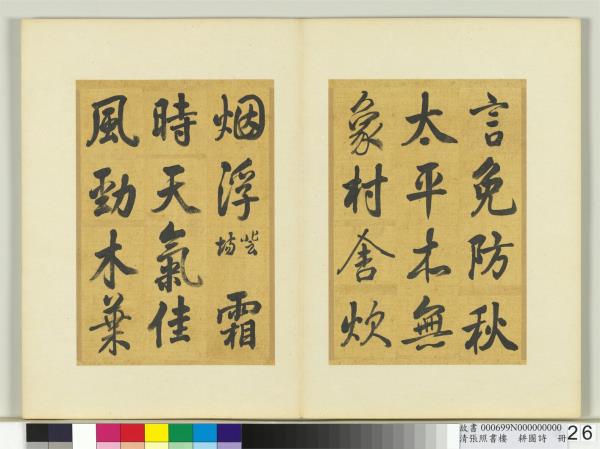 言免防秋
太平本無
象村舍炊
烟浮登場霜
時天氣佳
風勁木葉
故書 000699N000000000
清張照書樓 耕圖詩 冊
26